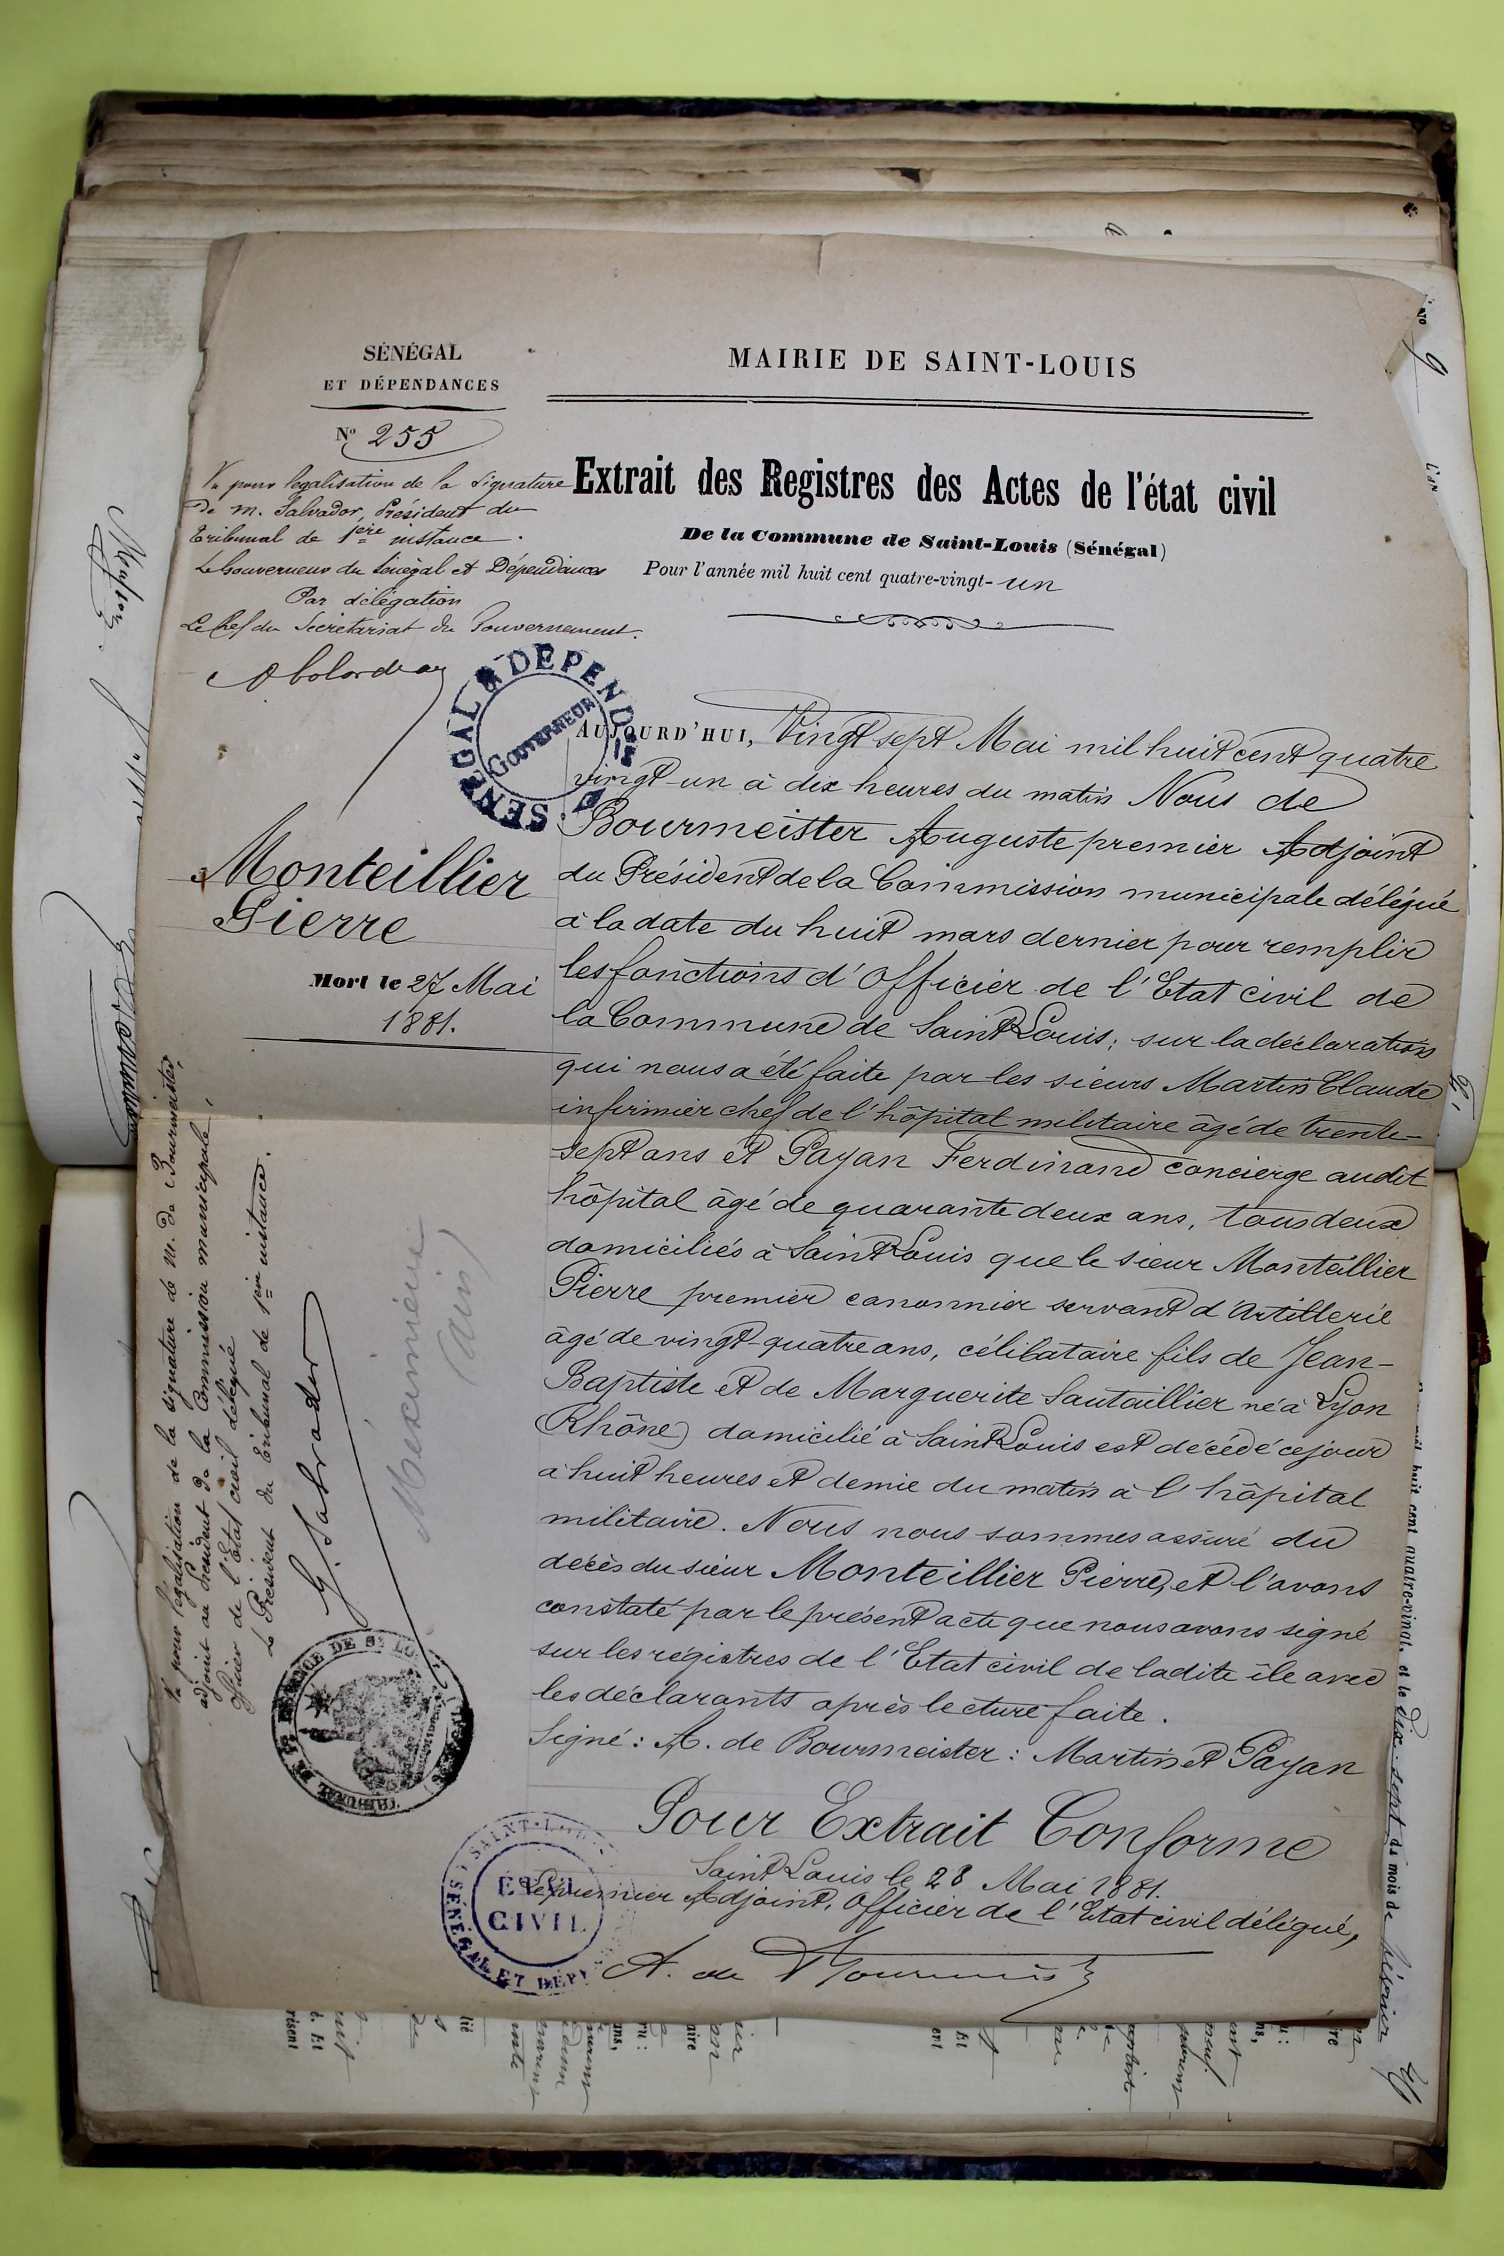 SÉNÉGAL
ET DÉPENDANCES
N° 255
Vu pour legalisation de la signature
de M. Salvador, Président du
tribunal de 1ère instance.
Le Gouverneur du Sénégal et Dépendances
Par délégation
Le Chef du Secrétariat du Gouvernement.
SÉNÉGAL & DÉPENDces
GOUVERNEUR
Monteillier
Pierre
Mort le 27 Mai
1881.
MAIRIE DE SAINT-LOUIS
Extrait des Registres des Actes de l'état civil
De la Commune de Saint-Louis (Sénégal)
Pour l'année mil huit cent quatre-vingt-un
AUJOURD'HUI, Vingt sept Mai mil huit cent quatre
vingt-un à dix heures du matin Nous de
Bourmeister Auguste premier Adjoint
du Président de la Commission municipale délégué
à la date du huit mars dernier pour remplir
les fonctions d'officier de l'Etat civil de
la Commune de Saint Louis; sur la déclaration
qui nous a été faite par les sieurs Martin Claude
infirmier chef de l'hôpital militaire âgé de trente-
sept ans et Payan Ferdinand concierge audit
hôpital âgé de quarante deux ans, tous deux
domiciliés à Saint Louis que le sieur Monteillier
Pierre premier canonnier servant d'Artillerie
âgé de vingt-quatre ans, célibataire fils de Jean-
Baptiste et de Marguerite Sautaillier né à Lyon
(Rhône) domicilié à Saint Louis est décédé ce jour
à huit heures et demie du matin à l'hôpital
militaire. Nous nous sommes assuré du
décès du sieur Monteillier Pierre, et l'avons
constaté par le présent acte que nous avons signé
sur les régistres de l'Etat civil de ladite île avec
les déclarants après lecture faite.
Signé: A. de Bourmeister: Martin et Payan
Pour Extrait Conforme
Saint Louis le 28 Mai 1881.
Le premier Adjoint, Officier de l'Etat civil délégué,
A. de Bourmeister
Vu pour légalisation de la signature de M. de Bourmeister,
adjoint au Président de la Commission municipale,
officier de l'Etat civil délégué
Le Président du tribunal de 1ère instance.
G. Salvador
Meximieux
(Ain)
ÉTAT
CIVIL
SAINT-LOUIS
SÉNÉGAL ET DÉP